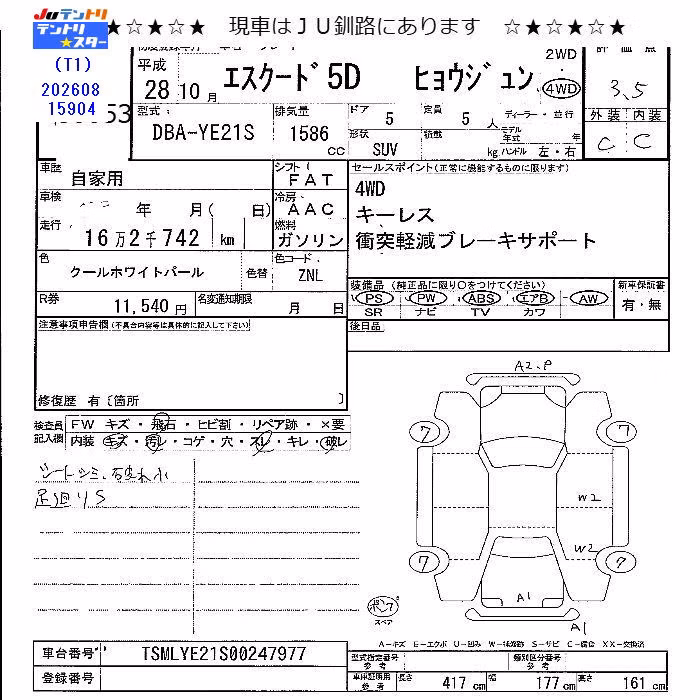 Juテントリ
テントリ
スター
★☆★☆★ 現車はＪＵ釧路にあります ☆★☆★☆★
(T1)
202608
15904
平成
28 10 月
エスクード 5D ヒョウジュン
2WD
4WD
評価点
3.5
外装 内装
C C
型式
DBA-YE21S
排気量
1586
CC
ドア
5
形状
SUV
定員
5 人
積載
kg
ディーラー ・ 並行
モデル年式 年
ハンドル 左・右
車歴
自家用
シフト
FAT
車検
年 月( 日)
冷房
AAC
走行
16万2千742 km
燃料
ガソリン
色
クールホワイトパール
色替
色コード
ZNL
R券
11,540 円
名変通知期限
月 日
セールスポイント(正常に機能するものに限ります)
4WD
キーレス
衝突軽減ブレーキサポート
装備品 (純正品に限り○をつけてください)
PS ・ PW ・ ABS ・ エアB ・ AW
SR ナビ TV カワ
新車保証書
有・無
後日品
注意事項申告欄(不具合内容等は具体的に記入して下さい)
修復歴 有〔箇所 〕
検査員記入欄
FW キズ ・ 飛石 ・ ヒビ割 ・ リペア跡 ・ ×要
内装 キズ ・ 汚レ ・ コゲ ・ 穴 ・ スレ ・ キレ ・ 破レ
足廻りS
A2、P
7
7
W2
W2
7
7
A1
A1
スペア
A－キズ E－エクボ U－凹み W－補修跡 S－サビ C－腐食 XX－交換済
車台番号
TSMLYE21S00247977
登録番号
型式指定番号
参考
類別区分番号
参考
車庫証明用
参考
長さ 417 cm 幅 177 cm 高さ 161 cm